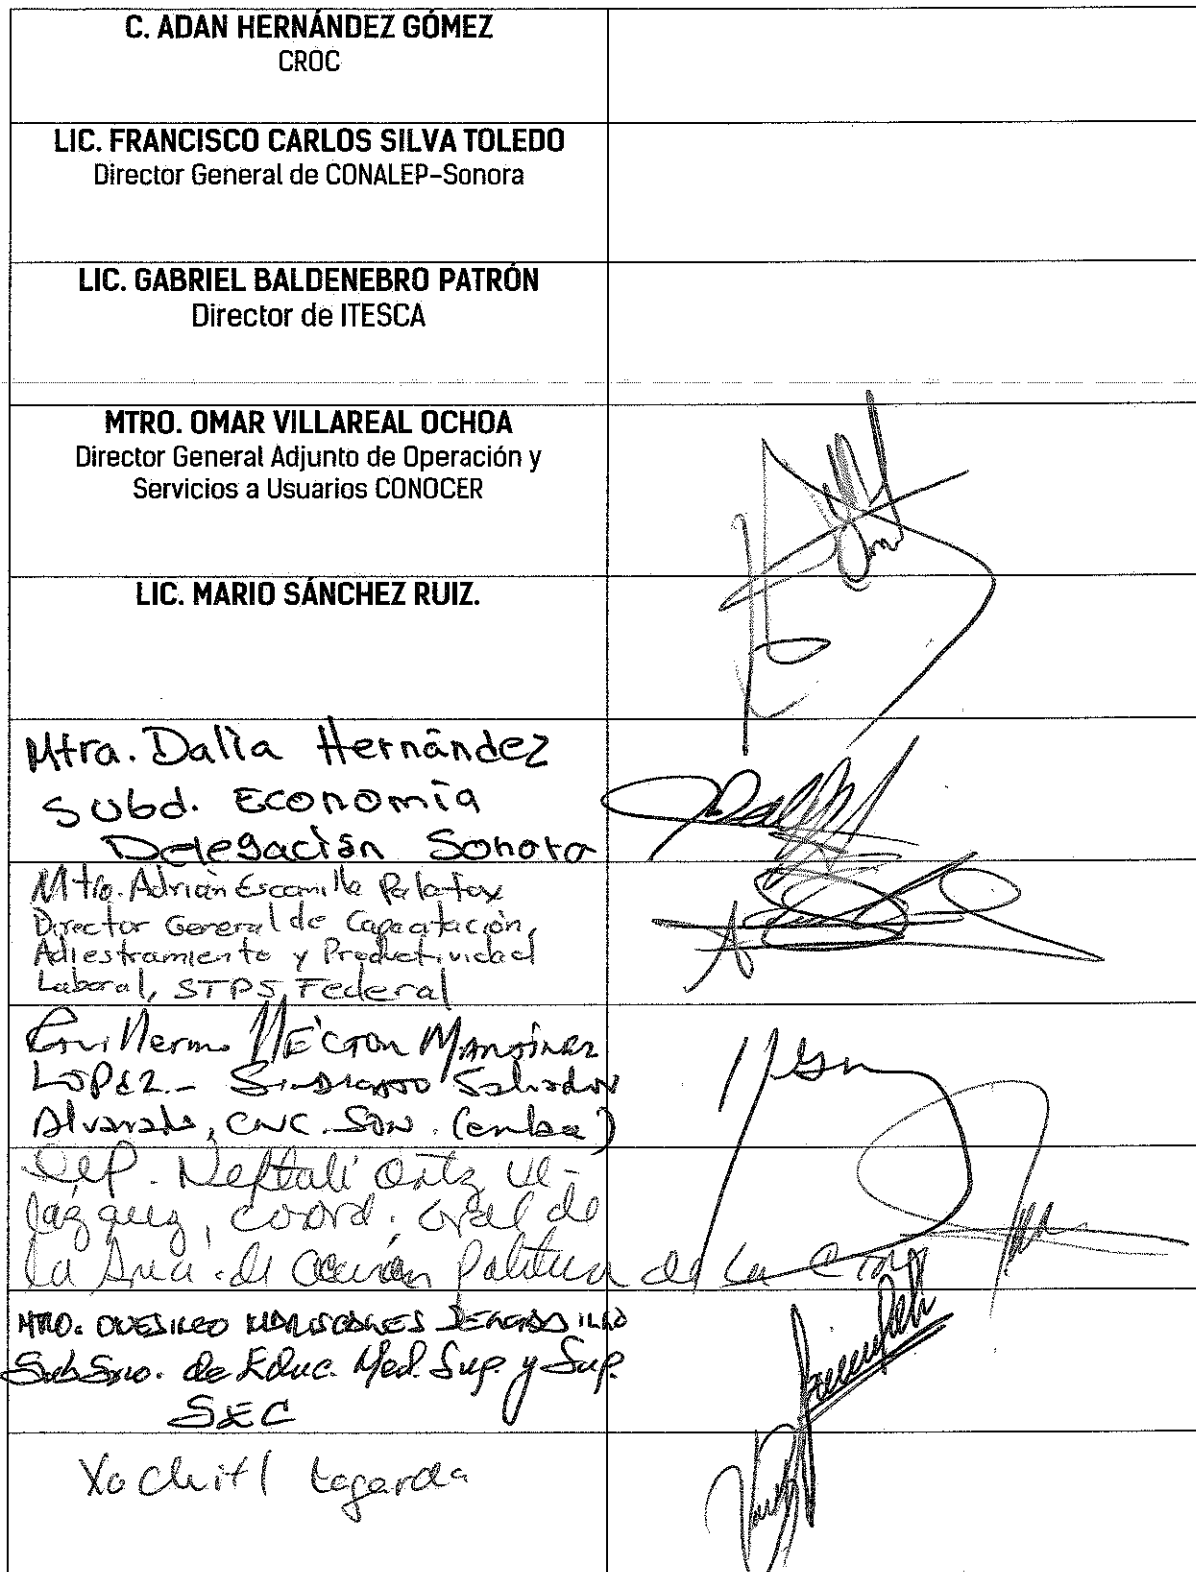 C. ADAN HERNÁNDEZ GÓMEZ
CROC
LIC. FRANCISCO CARLOS SILVA TOLEDO
Director General de CONALEP-Sonora
LIC. GABRIEL BALDENEBRO PATRÓN
Director de ITESCA
MTRO. OMAR VILLAREAL OCHOA
Director General Adjunto de Operación y
Servicios a Usuarios CONOCER
LIC. MARIO SÁNCHEZ RUIZ.
Mtra. Dalia Hernández
Subd. Economía
Delegación Sonora
Mtro. Adrián Escamilla Palafox
Director General de Capacitación,
Adiestramiento y Productividad
Laboral, STPS Federal
Guillermo HÉCTOR MARTÍNEZ
LOPEZ.- Salvador
Alvarado, CNC. SON.
Dip. Neftalí Ortiz Ve-
lázquez, coord. Gral de
la Area de Acción Política de la
MTRO. ONESIMO MARISCALES DELGADILLO
SubSrio. de Educ. Med. Sup. y Sup.
SEC
Xochitl Lagarda